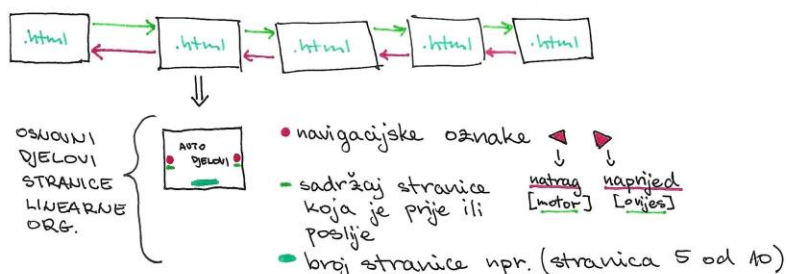 .html .html .html .html .html
OSNOVNI
DJELOVI
STRANICE
LINEARNE
ORG.
AUTO
DJELOVI
• navigacijske oznake
natrag naprijed
[motor] [ovjes]
- sadržaj stranice
koja je prije ili
poslije
broj stranice npr. (stranica 5 od 10)